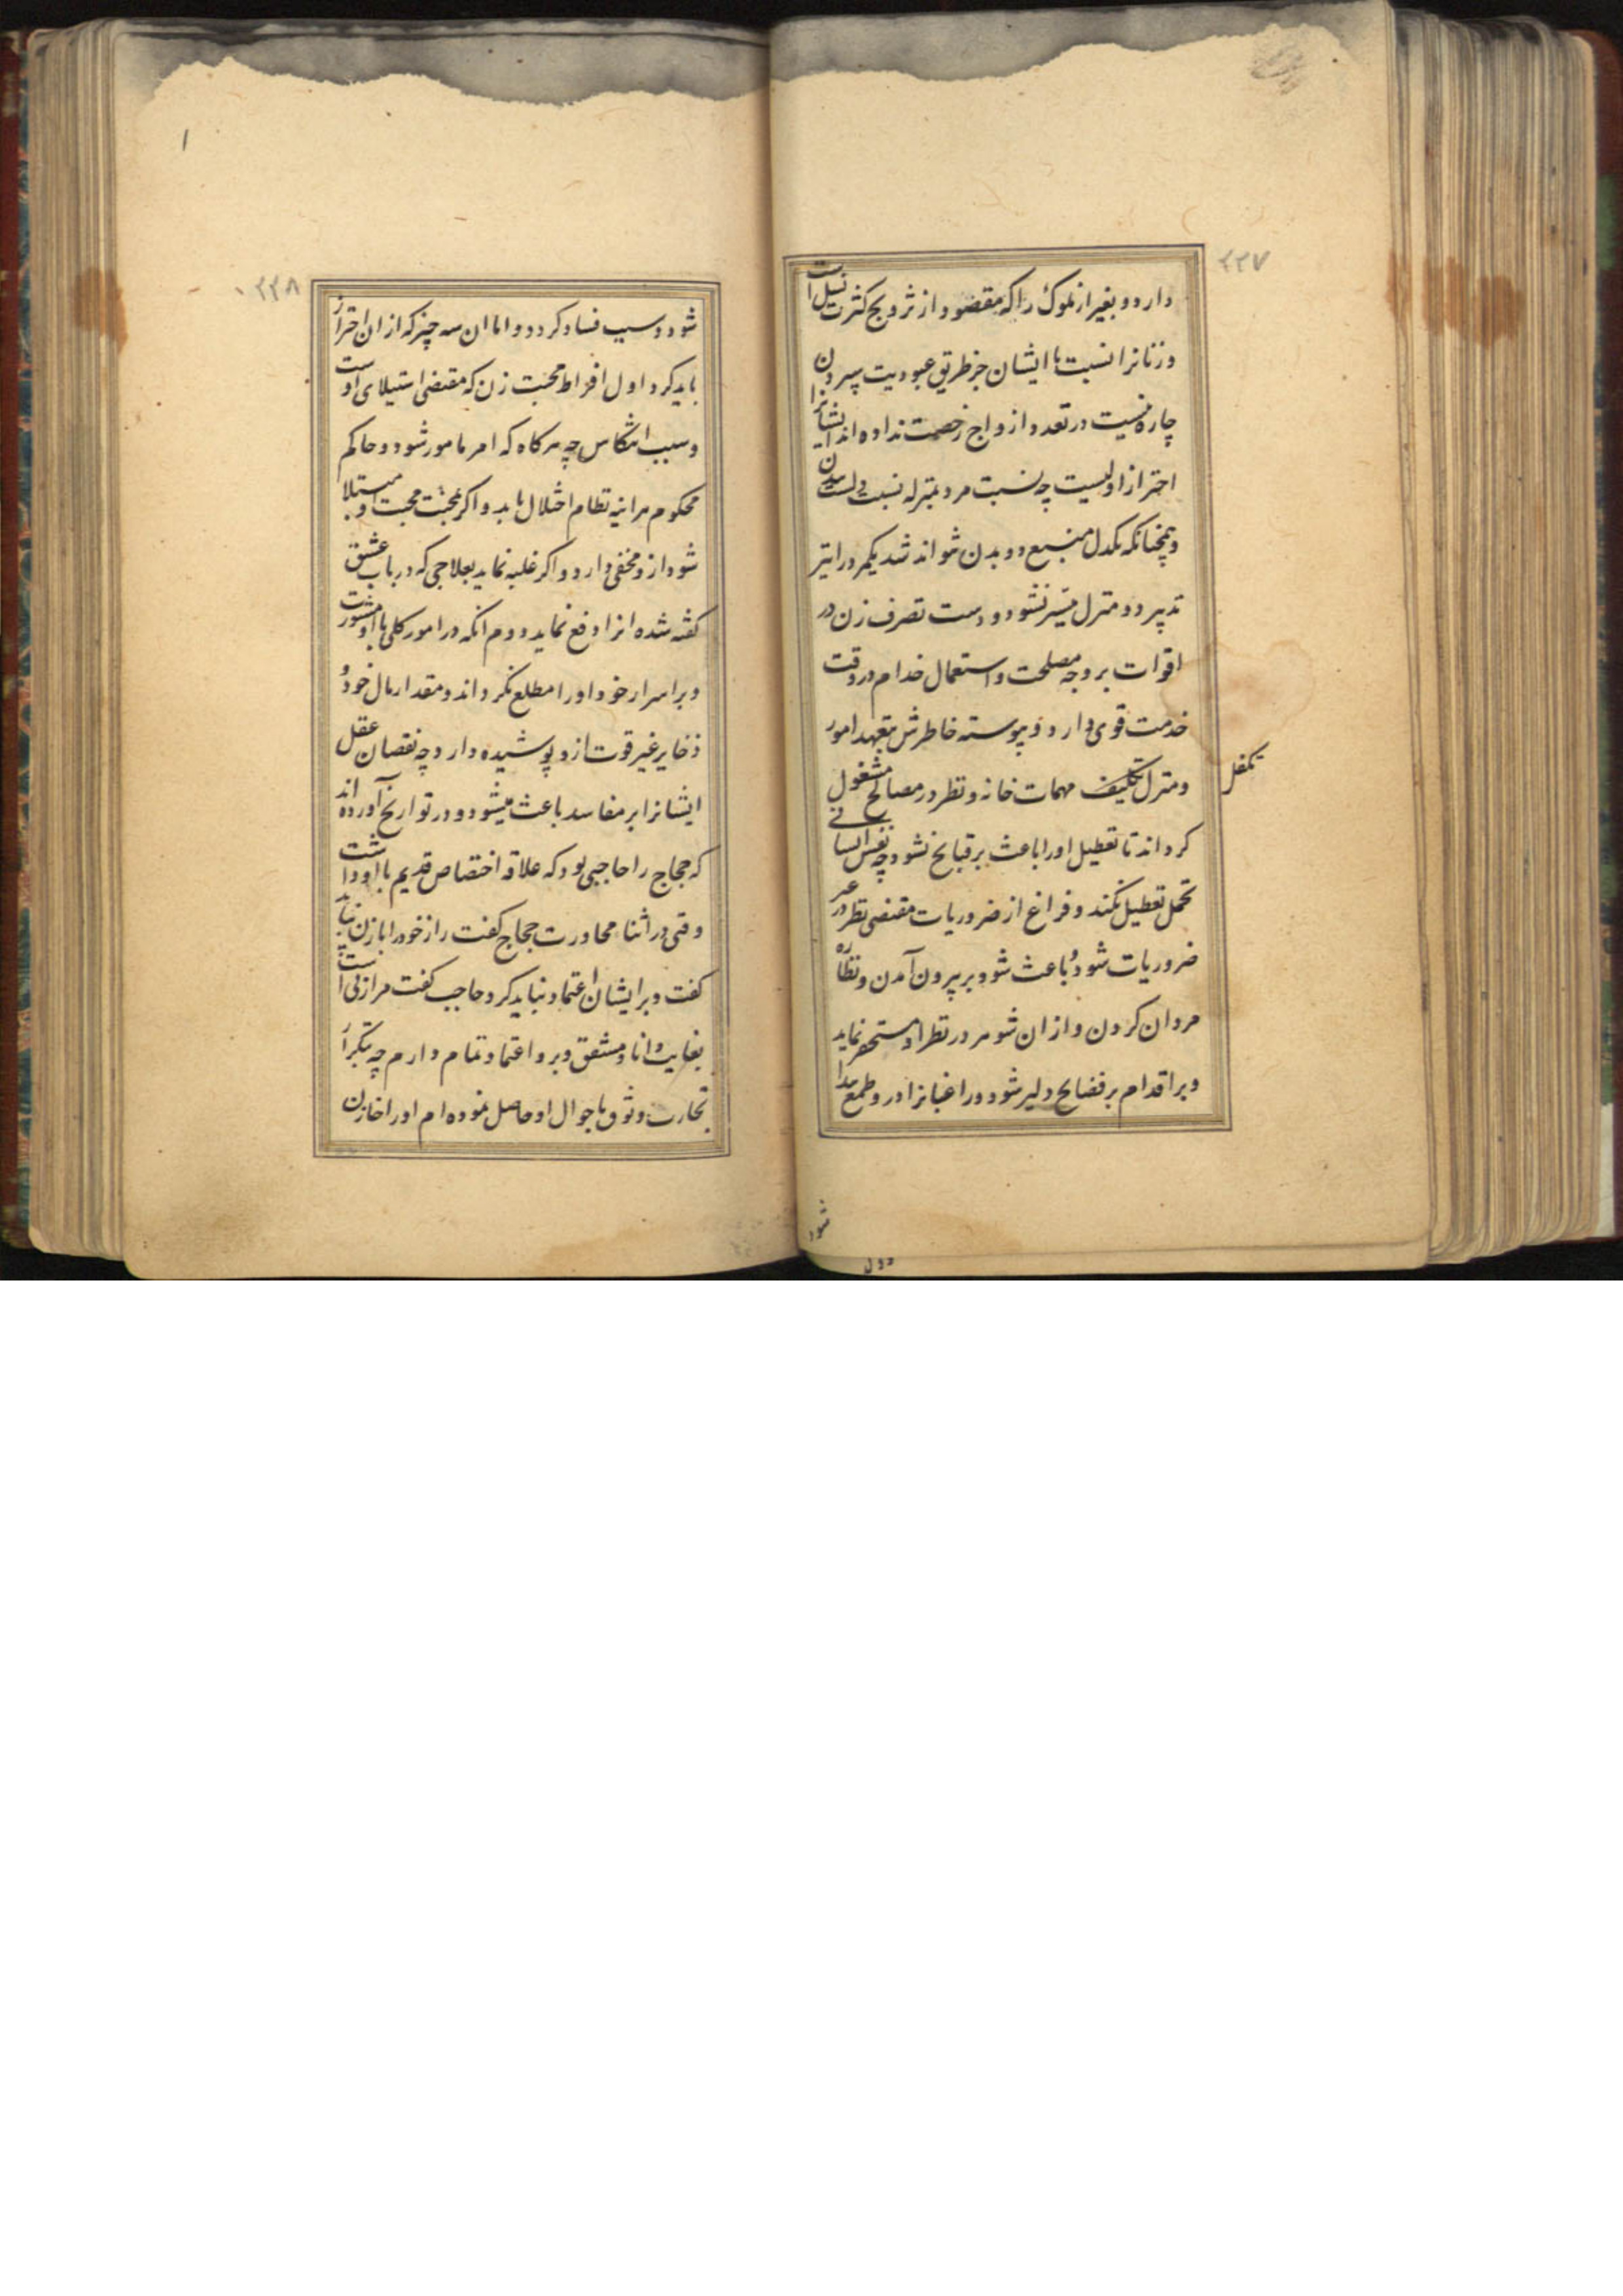 ۲۲۷
دارد و بغیر از ملوک را که مقصود از تزویج کثرت نسل است
و زنانرا نسبت با ایشان جز طریق عبودیت سپردن
چاره نیست در تعدد ازواج رخصت نداده اند ایشانرا
احتراز اولیست چه نسبت مرد بمنزله نسبت دلست ببدن
و همچنانکه یکدل منبع دو بدن نتواند شد یکمرد را نیز
تدبیر دو منزل میسر نشود و دست تصرف زن در
اقوات بر وجه مصلحت و استعمال خدام در وقت
خدمت قوی دارد و پیوسته خاطرش بتعهد امور
و منزل تکلیف مهمات خانه و نظر در مصالح مشغول
تکفل
کرداند تا تعطیل او را باعث بر قبایح نشود چه نفس انسانی
تحمل تعطیل نکند و فراغ از ضروریات مقتضی نظر در غیر
ضروریات شود و باعث شود بر بیرون آمدن و نظاره
مردان کردن و از ان شوهر در نظر او مستحقر نماید
و بر اقدام بر فضایح دلیر شود و راغبانرا در و طمع پیدا
شود
۲۲۸
شود و سبب فساد کردد و اما ان سه چیز که از ان احتراز
باید کرد اول افراط محبت زن که مقتضی استیلای اوست
و سبب انتکاس چه هرکاه که امر مامور شود و حاکم
محکوم هر اینه نظام اختلال یابد و اکر بمحنت محبت او مبتلا
شود از و مخفی دارد و اکر غلبه نماید بعلاجی که در باب عشق
کفته شده انرا دفع نماید دوم انکه در امور کلی با او مشورت
و بر اسرار خود او را مطلع نکرداند و مقدار مال خود و
ذخایر غیر قوت از و پوشیده دارد چه نقصان عقل
ایشانرا بر مفاسد باعث میشود و در تواریخ آورده اند
که حجاج را حاجبی بود که علاقه اختصاص قدیم با او داشت
وقتی در اثناء محاورت حجاج کفت راز خود را با زن نباید
کفت و بر ایشان اعتماد نباید کرد حاجب کفت مرا زنی است
بغایت دانا و مشفق و برو اعتماد تمام دارم چه بتکرار
تجارب وثوق باحوال او حاصل نموده ام او را خازن